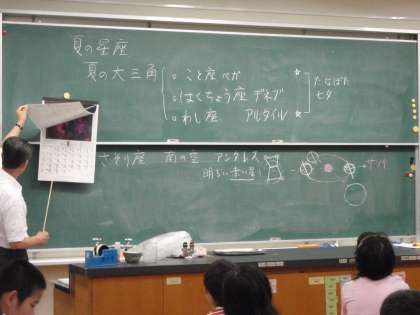 夏の星座
夏の大三角
○ こと座 ベガ ☆
○ はくちょう座 デネブ
○ わし座 アルタイル ☆
たなばた
七夕
さそり座 南の空 アンタレス
明るい赤い星